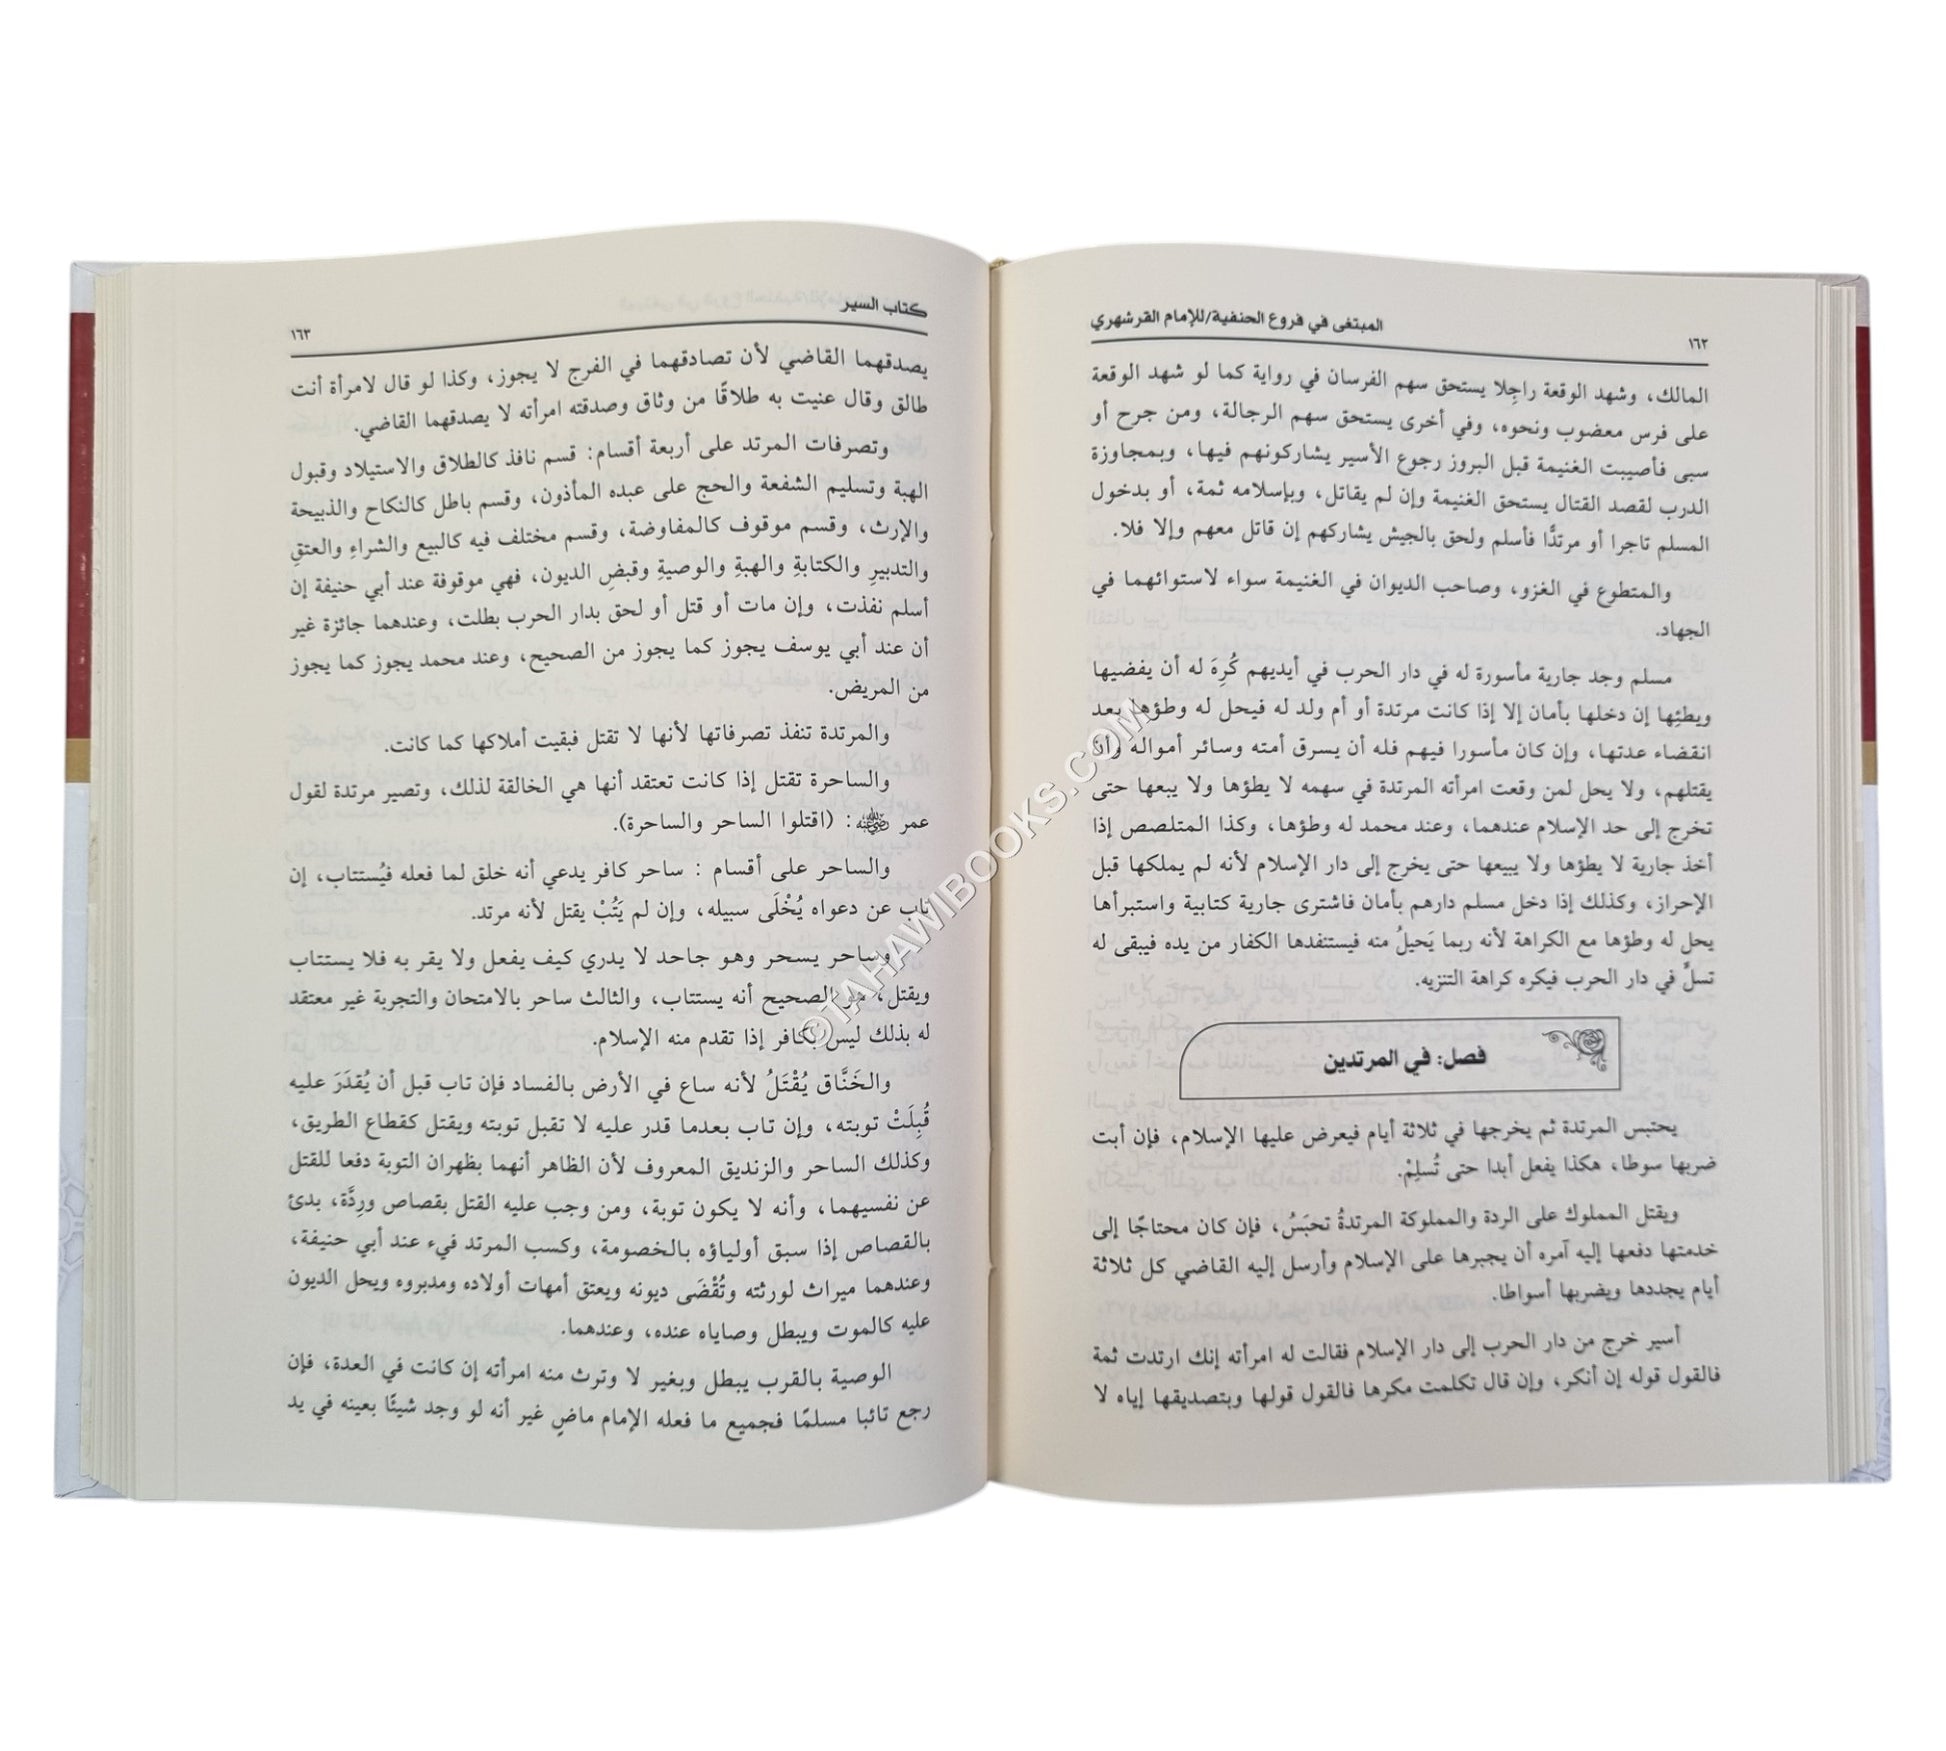 ١٦٢
المبتغى في فروع الحنفية/للإمام القرشهري
المالك، وشهد الوقعة راجِلا يستحق سهم الفرسان في رواية كما لو شهد الوقعة
على فرس معضوب ونحوه، وفي أخرى يستحق سهم الرجالة، ومن جرح أو
سبى فأصيبت الغنيمة قبل البروز رجوع الأسير يشاركونهم فيها، وبمجاوزة
الدرب لقصد القتال يستحق الغنيمة وإن لم يقاتل، وبإسلامه ثمة، أو بدخول
المسلم تاجرا أو مرتدًّا فأسلم ولحق بالجيش يشاركهم إن قاتل معهم وإلا فلا.
والمتطوع في الغزو، وصاحب الديوان في الغنيمة سواء لاستوائهما في
الجهاد.
مسلم وجد جارية مأسورة له في دار الحرب في أيديهم كُرِهَ له أن يفضيها
ويطئِها إن دخلها بأمان إلا إذا كانت مرتدة أو أم ولد له فيحل له وطؤها بعد
انقضاء عدتها، وإن كان مأسورا فيهم فله أن يسرق أمته وسائر أمواله وأن
يقتلهم، ولا يحل لمن وقعت امرأته المرتدة في سهمه لا يطؤها ولا يبعها حتى
تخرج إلى حد الإسلام عندهما، وعند محمد له وطؤها، وكذا المتلصص إذا
أخذ جارية لا يطؤها ولا يبيعها حتى يخرج إلى دار الإسلام لأنه لم يملكها قبل
الإحراز، وكذلك إذا دخل مسلم دارهم بأمان فاشترى جارية كتابية واستبرأها
يحل له وطؤها مع الكراهة لأنه ربما يَحيلُ منه فيستنفدها الكفار من يده فيبقى له
تسلٌّ في دار الحرب فيكره كراهة التنزيه.
فصل: في المرتدين
يحتبس المرتدة ثم يخرجها في ثلاثة أيام فيعرض عليها الإسلام، فإن أبت
ضربها سوطا، هكذا يفعل أبدا حتى تُسلِمْ.
ويقتل المملوك على الردة والمملوكة المرتدةُ تحبَسُ، فإن كان محتاجًا إلى
خدمتها دفعها إليه آمره أن يجبرها على الإسلام وأرسل إليه القاضي كل ثلاثة
أيام يجددها ويضربها أسواطا.
أسير خرج من دار الحرب إلى دار الإسلام فقالت له امرأته إنك ارتدت ثمة
فالقول قوله إن أنكر، وإن قال تكلمت مكرها فالقول قولها وبتصديقها إياه لا
كتاب السير
١٦٣
يصدقهما القاضي لأن تصادقهما في الفرج لا يجوز، وكذا لو قال لامرأة أنت
طالق وقال عنيت به طلاقًا من وثاق وصدقته امرأته لا يصدقهما القاضي.
وتصرفات المرتد على أربعة أقسام: قسم نافذ كالطلاق والاستيلاد وقبول
الهبة وتسليم الشفعة والحج على عبده المأذون، وقسم باطل كالنكاح والذبيحة
والإرث، وقسم موقوف كالمفاوضة، وقسم مختلف فيه كالبيع والشراءِ والعتقِ
والتدبيرِ والكتابةِ والهبةِ والوصيةِ وقبضِ الديون، فهي موقوفة عند أبي حنيفة إن
أسلم نفذت، وإن مات أو قتل أو لحق بدار الحرب بطلت، وعندهما جائزة غير
أن عند أبي يوسف يجوز كما يجوز من الصحيح، وعند محمد يجوز كما يجوز
من المريض.
والمرتدة تنفذ تصرفاتها لأنها لا تقتل فبقيت أملاكها كما كانت.
والساحرة تقتل إذا كانت تعتقد أنها هي الخالقة لذلك، وتصير مرتدة لقول
عمر رضي الله عنه: (اقتلوا الساحر والساحرة).
والساحر على أقسام : ساحر كافر يدعي أنه خلق لما فعله فيُستتاب، إن
تاب عن دعواه يُخْلَى سبيله، وإن لم يَتُبْ يقتل لأنه مرتد.
وساحر يسحر وهو جاحد لا يدري كيف يفعل ولا يقر به فلا يستتاب
ويقتل، هو الصحيح أنه يستتاب، والثالث ساحر بالامتحان والتجربة غير معتقد
له بذلك ليس بكافر إذا تقدم منه الإسلام.
والخَنَّاق يُقْتَلُ لأنه ساع في الأرض بالفساد فإن تاب قبل أن يُقدَرَ عليه
قُبِلَتْ توبته، وإن تاب بعدما قدر عليه لا تقبل توبته ويقتل كقطاع الطريق،
وكذلك الساحر والزنديق المعروف لأن الظاهر أنهما بظهران التوبة دفعا للقتل
عن نفسيهما، وأنه لا يكون توبة، ومن وجب عليه القتل بقصاص ورِدَّة، بدئ
بالقصاص إذا سبق أولياؤه بالخصومة، وكسب المرتد فيء عند أبي حنيفة،
وعندهما ميراث لورثته وتُقْضَى ديونه ويعتق أمهات أولاده ومدبروه ويحل الديون
عليه كالموت ويبطل وصاياه عنده، وعندهما.
الوصية بالقرب يبطل وبغير لا وترث منه امرأته إن كانت في العدة، فإن
رجع تائبا مسلمًا فجميع ما فعله الإمام ماضٍ غير أنه لو وجد شيئًا بعينه في يد
©TAHAWIBOOKS.COM